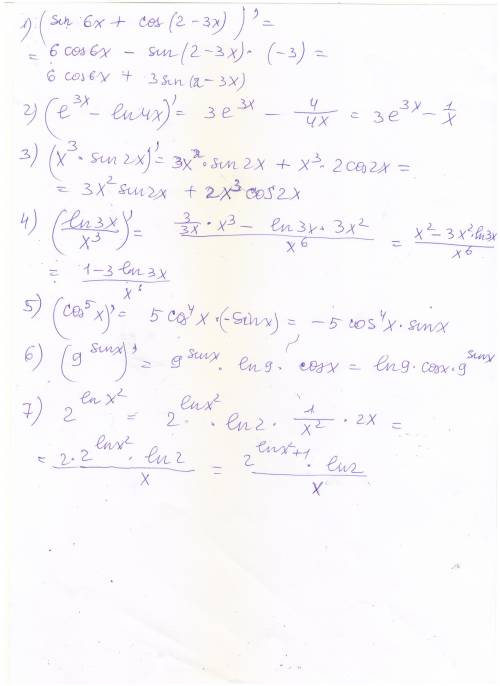 1) (sin 6x + cos (2-3x))' =
= 6 cos6x - sin (2-3x) · (-3) =
6 cos6x + 3 sin (2-3x)
2) (e^3x - ln4x)' = 3e^3x - 4/4x = 3e^3x - 1/x
3) (x^3 · sin 2x)' = 3x^2 · sin 2x + x^3 · 2cos2x =
= 3x^2 sin2x + 2x^3 cos2x
4) (ln3x/x^3)' = (3/3x · x^3 - ln3x · 3x^2)/x^6 = (x^2 - 3x^2 · ln3x)/x^6
= (1-3 ln3x)/x
5) (cos^5 x)' = 5cos^4 x · (-sinx) = -5 cos^4 x · sinx
6) (9^sinx)' = 9^sinx · ln9 · cosx = ln9 · cosx · 9^sinx
7) 2^lnx^2 = 2^lnx^2 · ln2 · 1/x^2 · 2x =
= (2·2^lnx^2 · ln2)/x = (2^lnx^2+1 · ln2)/x